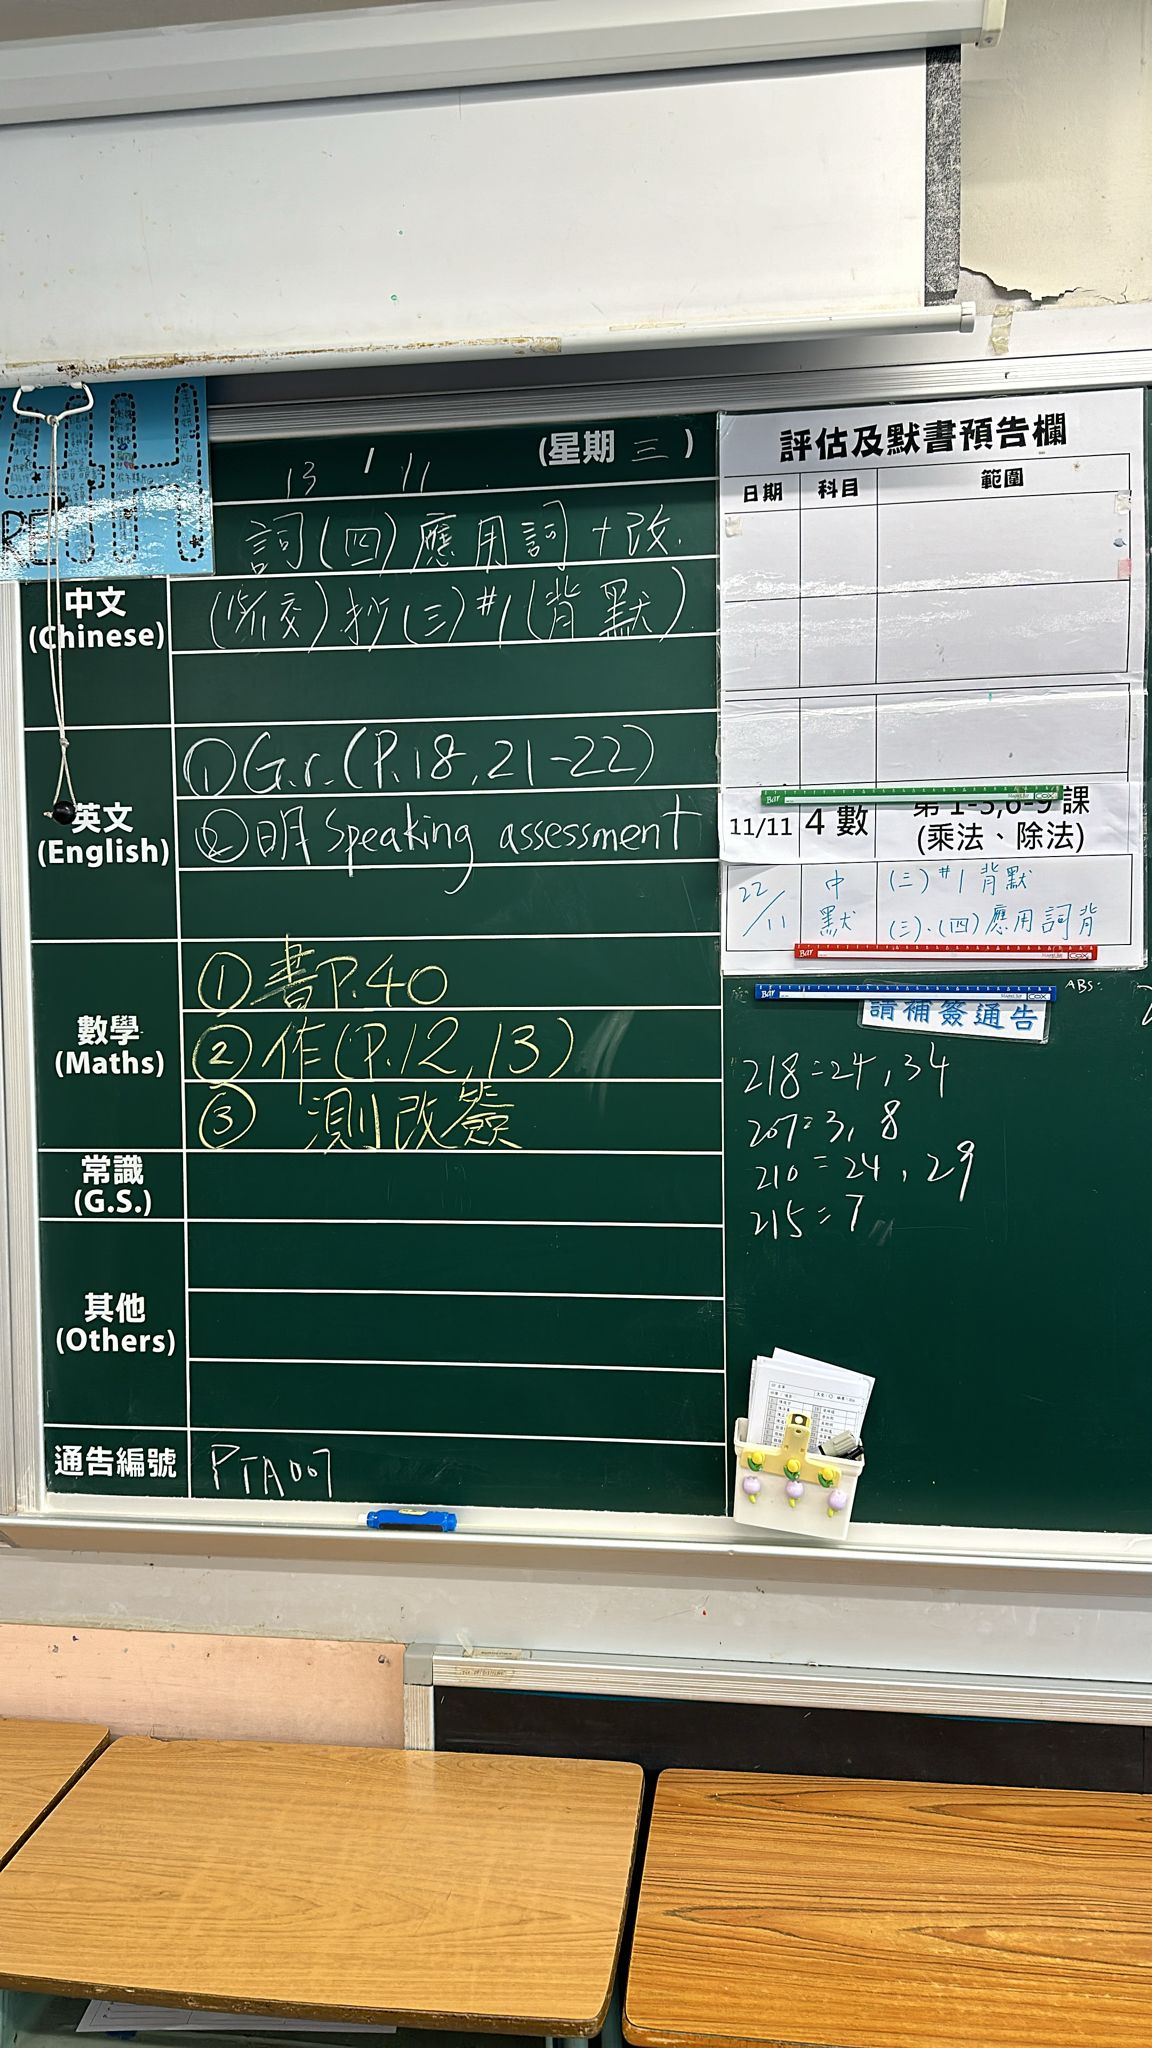 13 / 11 (星期三)
詞(四)應用詞+改.
中文
(Chinese)
抄(三)#1(背默)
英文
(English)
① G.r. (P.18, 21-22)
② 明 speaking assessment
數學
(Maths)
① 書P.40
② 作(P.12,13)
③ 測改簽
常識
(G.S.)
其他
(Others)
通告編號
PTA007
評估及默書預告欄
日期 科目 範圍
11/11 4 數 第 1-3,6-9 課
(乘法、除法)
22/11 中默 (三)#1背默
(三)、(四)應用詞背
ABS:
請補簽通告
218=24,34
207=3,8
210=24,29
215=7